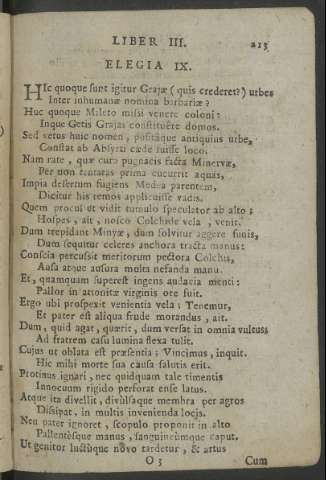 LIBER III. 213
ELEGIA IX.
HIc quoque sunt igitur Grajæ (quis crederet?) urbes
Inter inhumanæ nomina barbariæ?
Huc quoque Mileto missi venere coloni:
Inque Getis Grajas constituêre domos.
Sed vetus huic nomen, positâque antiquius urbe,
Constat ab Absyrti cæde fuisse loco.
Nam rate, quæ cura pugnacis facta Minervæ,
Per non tentatas prima cucurrit aquas,
Impia desertum fugiens Medea parentem,
Dicitur his remos applicuisse vadis.
Quem procul ut vidit tumulo speculator ab alto;
Hospes, ait, nosco Colchide vela, venit.
Dum trepidant Minyæ, dum solvitur aggere funis,
Dum sequitur celeres anchora tracta manus:
Conscia percussit meritorum pectora Colchis,
Ausa atque ausura multa nefanda manu.
Et, quamquam superest ingens audacia menti:
Pallor in attonitæ virginis ore fuit.
Ergo ubi prospexit venientia vela: Tenemur,
Et pater est aliqua frude morandus, ait.
Dum, quid agat, quærit, dum versat in omnia vultus
Ad fratrem casu lumina flexa tulit.
Cujus ut oblata est præsentia; Vincimus, inquit.
Hic mihi morte sua causa salutis erit.
Protinus ignari, nec quidquam tale timentis
Innocuum rigido perforat ense latus.
Atque ita divellit, divûlsaque membra per agros
Dissipat, in multis invenienda locis.
Neu pater ignoret, scopulo proponit in alto
Pallentêsque manus, sanguineûmque caput.
Ut genitor luctûque novo tardetur, & artus
O 3 Cum